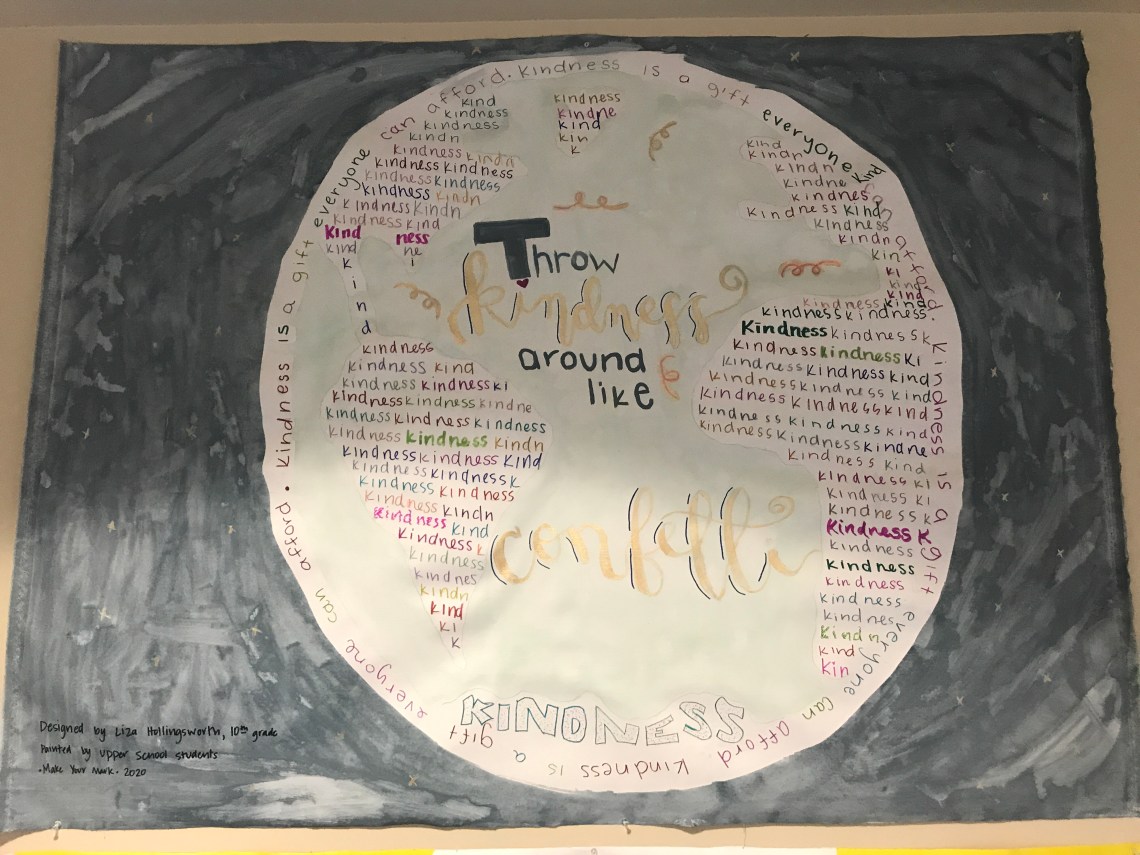 kindness is a gift everyone can afford.
Kindness is a gift everyone can afford.
kindness is a gift everyone can afford.
Kindness is a gift everyone can afford
kind
kindness
kindness
kindn
kindness kinda
kindness kindness
kindness kindness
kindness kindn
kindness kindn
kindness kind
kind ness
kind ne
k i
i
n
d
kindness
kindne
kind
kin
k
kind
kindn
kindn
kindne
kindnes
kindness kind
kindness
kindn
kin
ki
kind
kind
kindness kind
Throw
kindness
around
like
confetti
kindness
kindness kind
kindness kindness ki
kindness kindness kindne
kindness kindness kindness
kindness kindness kindn
kindness kindness kind
kindness kindness k
kindness kindness
kindness kindn
kindness kind
kindness k
kindness
kindnes
kindn
kind
ki
k
kindness kindness
kindness kindness k
kindness kindness ki
kindness kindness kind
kindness kindness kind
kindness kindness kind
kindness kindness kind
kindness kindness kindne
kindness kind
kindness ki
kindness ki
kindness k
kindness k
kindness
kindness
kindness
kindness
kindnes
kindn
kind
kin
KINDNESS
Designed by Liza Hollingsworth, 10th grade
Painted by Upper School students
·Make Your Mark· 2020